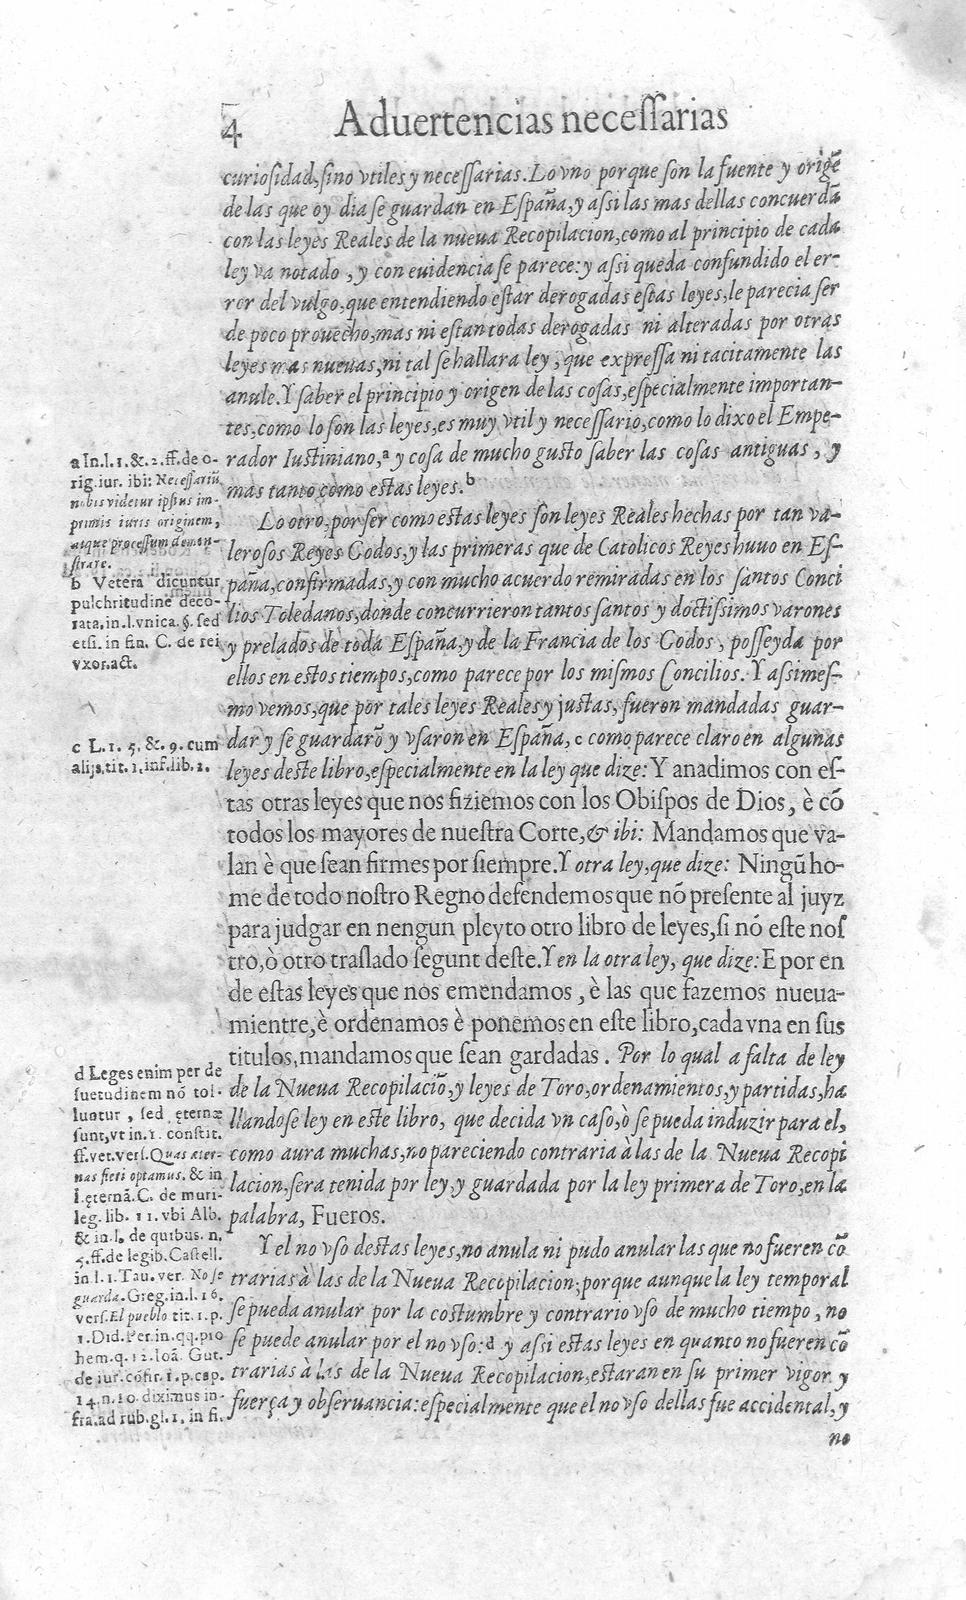 4 Aduertencias neceſſarias
curioſidad, ſino vtiles y neceſſarias. Lo vno porque ſon la fuente y origẽ
de las que oy dia ſe guardan en Eſpaña, y aſsi las mas dellas concuerdã
con las leyes Reales de la nueua Recopilacion, como al principio de cada
ley va notado, y con euidencia ſe parece: y aſsi queda confundido el er-
ror del vulgo, que entendiendo eſtar derogadas eſtas leyes, le parecia ſer
de poco prouecho, mas ni eſtan todas derogadas ni alteradas por otras
leyes mas nueuas, ni tal ſe hallara ley, que expreſſa ni tacitamente las
anule. Y ſaber el principio y origen de las coſas, eſpecialmente importan-
tes, como lo ſon las leyes, es muy vtil y neceſſario, como lo dixo el Empe-
rador Iuſtiniano,ª y coſa de mucho guſto ſaber las coſas antiguas, y
mas tanto como eſtas leyes.ᵇ
Lo otro, por ſer como eſtas leyes ſon leyes Reales hechas por tan va-
leroſos Reyes Godos, y las primeras que de Catolicos Reyes huuo en Eſ-
paña, confirmadas, y con mucho acuerdo remiradas en los ſantos Conci
lios Toledanos, donde concurrieron tantos ſantos y doctiſsimos varones
y prelados de toda Eſpaña, y de la Francia de los Godos, poſſeyda por
ellos en eſtos tiempos, como parece por los miſmos Concilios. Y aſsimeſ-
mo vemos, que por tales leyes Reales y juſtas, fueron mandadas guar-
dar y ſe guardarõ y vſaron en Eſpaña, c como parece claro en algunas
leyes deſte libro, eſpecialmente en la ley que dize: Y anadimos con eſ-
tas otras leyes que nos fiziemos con los Obiſpos de Dios, è cõ
todos los mayores de nueſtra Corte, & ibi: Mandamos que va-
lan è que ſean firmes por ſiempre. Y otra ley, que dize: Ningũ ho-
me de todo noſtro Regno defendemos que nõ preſente al juyz
para judgar en nengun pleyto otro libro de leyes, ſi nó eſte noſ
tro, ò otro traſlado ſegunt deſte. Y en la otra ley, que dize: E por en
de eſtas leyes que nos emendamos, è las que fazemos nueua-
mientre, è ordenamos è ponemos en eſte libro, cada vna en ſus
titulos, mandamos que ſean gardadas. Por lo qual a falta de ley
de la Nueua Recopilaciõ, y leyes de Toro, ordenamientos, y partidas, ha
llandoſe ley en eſte libro, que decida vn caſo, ò ſe pueda induzir para el,
como aura muchas, no pareciendo contraria à las de la Nueua Recopi
lacion, ſera tenida por ley, y guardada por la ley primera de Toro, en la
palabra, Fueros.
Y el no vſo deſtas leyes, no anula ni pudo anular las que no fueren cõ
trarias à las de la Nueua Recopilacion; porque aunque la ley temporal
ſe pueda anular por la coſtumbre y contrario vſo de mucho tiempo, no
ſe puede anular por el no vſo: d y aſsi eſtas leyes en quanto no fueren cõ
trarias à las de la Nueua Recopilacion, eſtaran en ſu primer vigor y
fuerça y obſeruancia: eſpecialmente que el no vſo dellas fue accidental, y
no
a In.l. 1. &. 2. ff. de o-
rig. iur. ibi: Neceſſariũ
nobis videtur ipſius im-
primis iuris originem,
atque proceſſum demon-
ſtrare.
b Vetera dicuntur
pulchritudine deco-
rata, in.l. vnica. §. ſed
etſi. in fin. C. de rei
vxor. act.
c L. 1. 5. &. 9. cum
alijs, tit. 1. inf. lib. 2.
d Leges enim per de
ſuetudinem nõ tol-
luntur, ſed ęternæ
ſunt, vt in. 1. conſtit.
ff. vet. verſ. Quas æter-
nas fieri optamus. & in
l. ęternã. C. de muri-
leg. lib. 11. vbi Alb.
& in.l. de quibus. n.
5. ff. de legib. Caſtell.
in.l. 1. Tau. ver. No ſe
guarda. Greg. in.l. 16.
verſ. El pueblo tit. 1. p.
1. Did. Per. in. qq. pro
hem. q. 12. Ioã. Gut.
de iur. cõfir. 1. p. cap.
14. n. 10. diximus in-
fra. ad rub. gl. 1. in fi.